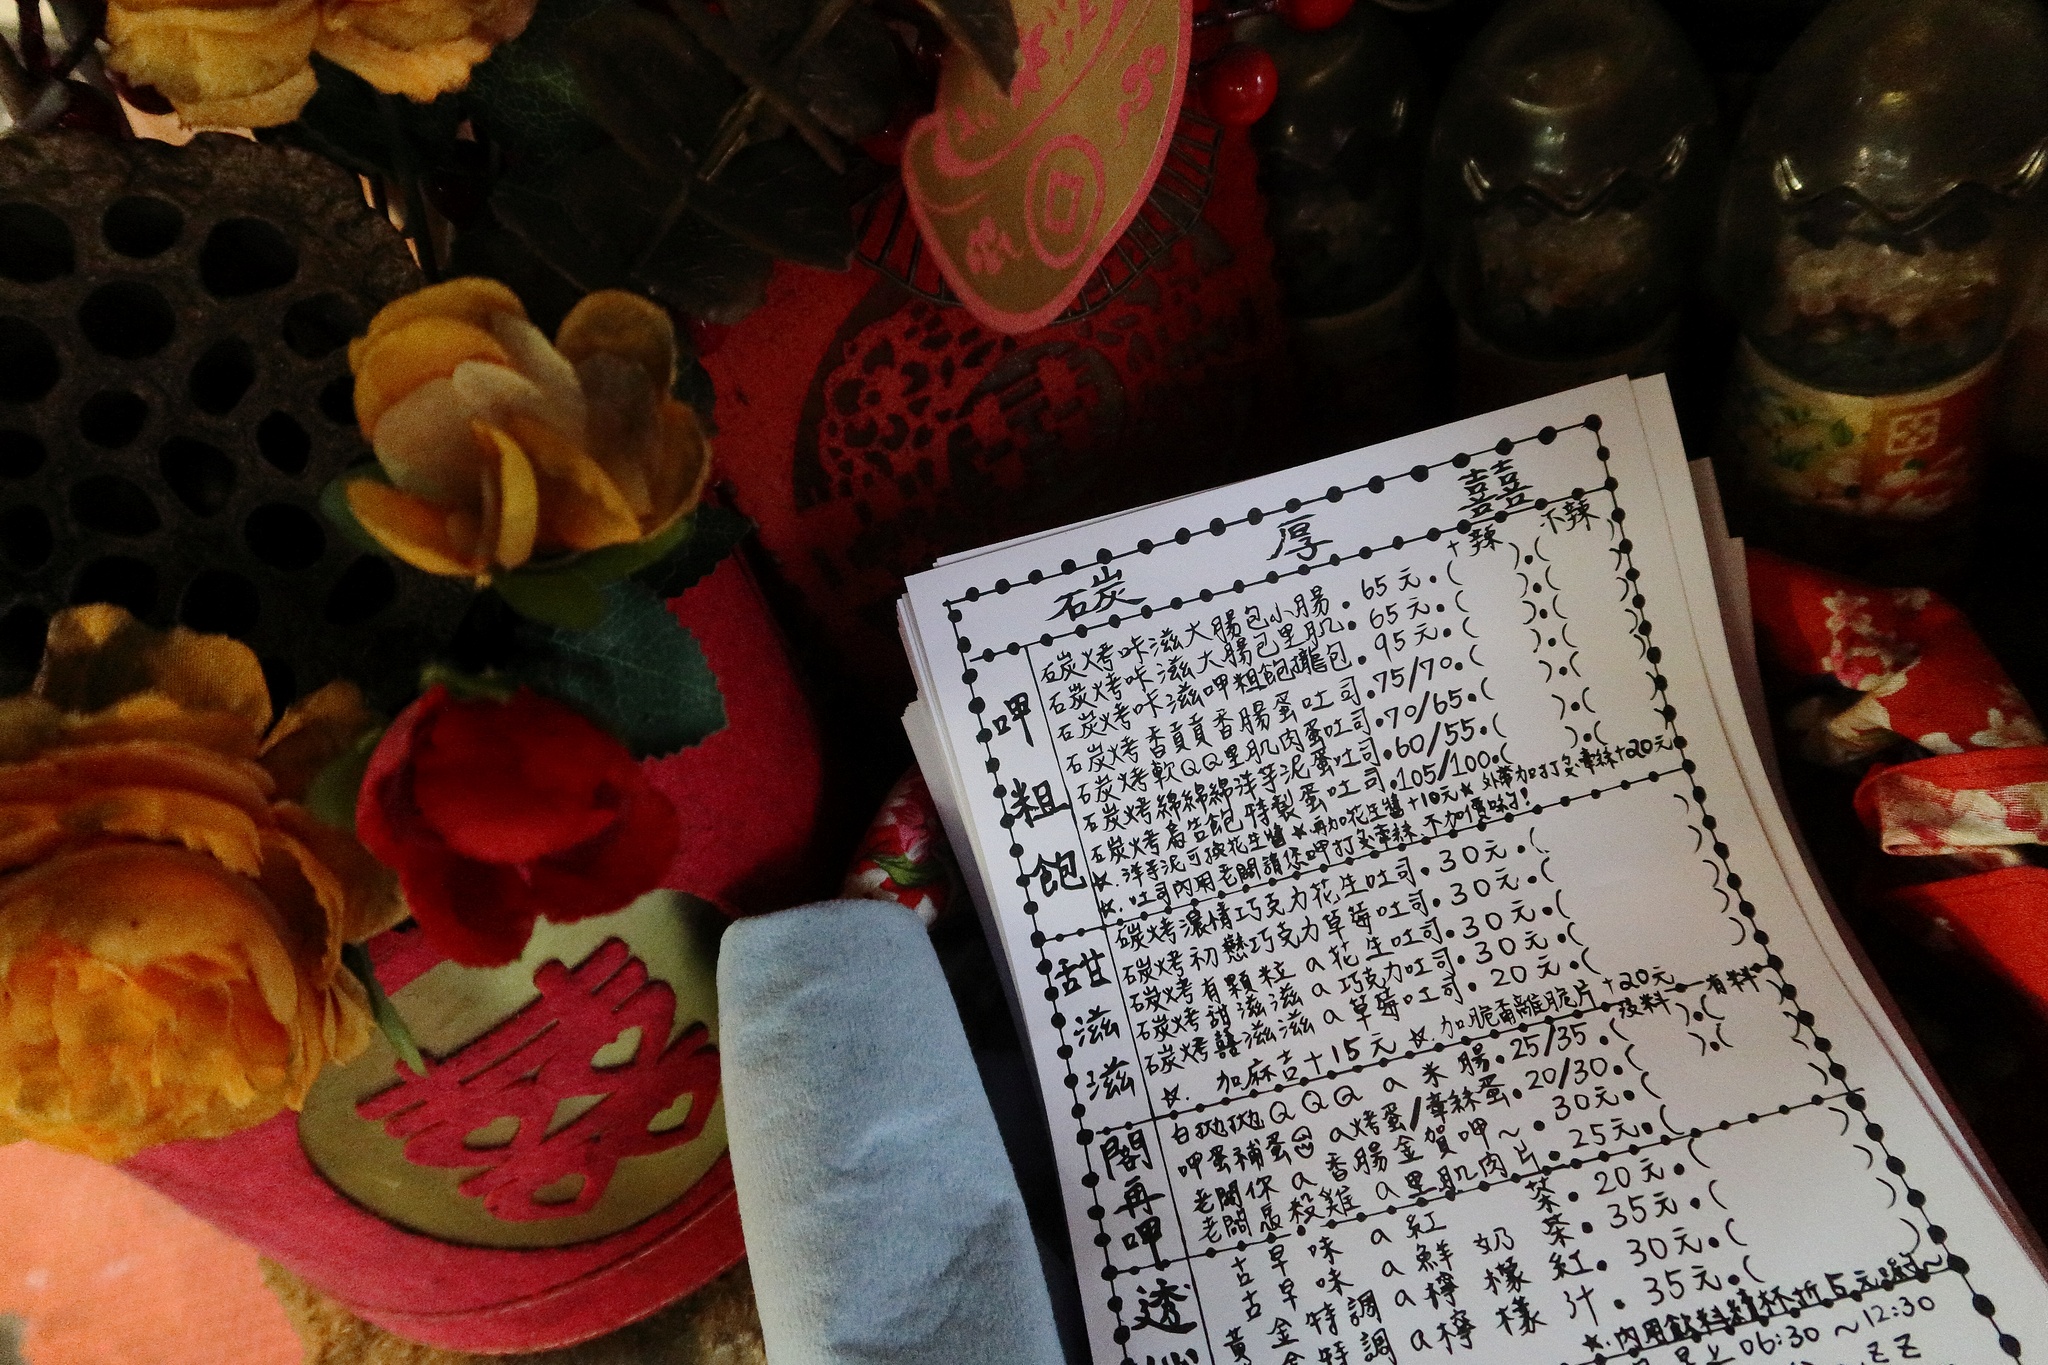 碳 厚 囍
呷粗飽
+辣 不辣
碳烤咔滋大腸包小腸.65元.( ).( )
碳烤咔滋大腸包里肌.65元.( ).( )
碳烤咔滋呷粗飽攏包.95元.( ).( )
碳烤香貢貢香腸蛋吐司.75/70.( ).( )
碳烤軟QQ里肌肉蛋吐司.70/65.( ).( )
碳烤綿綿綿洋芋泥蛋吐司.60/55.( ).( )
碳烤厚告飽特製蛋吐司.105/100.( ).( )
☆.洋芋泥可換花生醬★再加花生醬+10元★外帶加打叉韋絲+20元
☆.吐司內用老闆請您呷打叉韋絲.不加價唷!
甜滋滋
碳烤濃情巧克力花生吐司.30元.( )
碳烤初戀巧克力草莓吐司.30元.( )
碳烤有顆粒a花生吐司.30元.( )
碳烤甜滋滋a巧克力吐司.30元.( )
碳烤囍滋滋a草莓吐司.20元.( )
☆. 加麻吉+15元 ☆.加脆酥離脆片+20元
閣再呷
沒料 有料
白拋拋QQQa米腸.25/35.( ).( )
呷蛋補蛋a烤蛋/韋絲蛋.20/30.( ).( )
老闆你a香腸金賀呷~.30元.( )
老闆恁殺雞a里肌肉片.25元.( )
透
古早味a紅茶.20元.( )
古早味a鮮奶茶.35元.( )
黃金特調a檸檬紅.30元.( )
特調a檸檬汁.35元.( )
☆.內用飲料續杯折5元唷~
早上06:30~12:30
zz